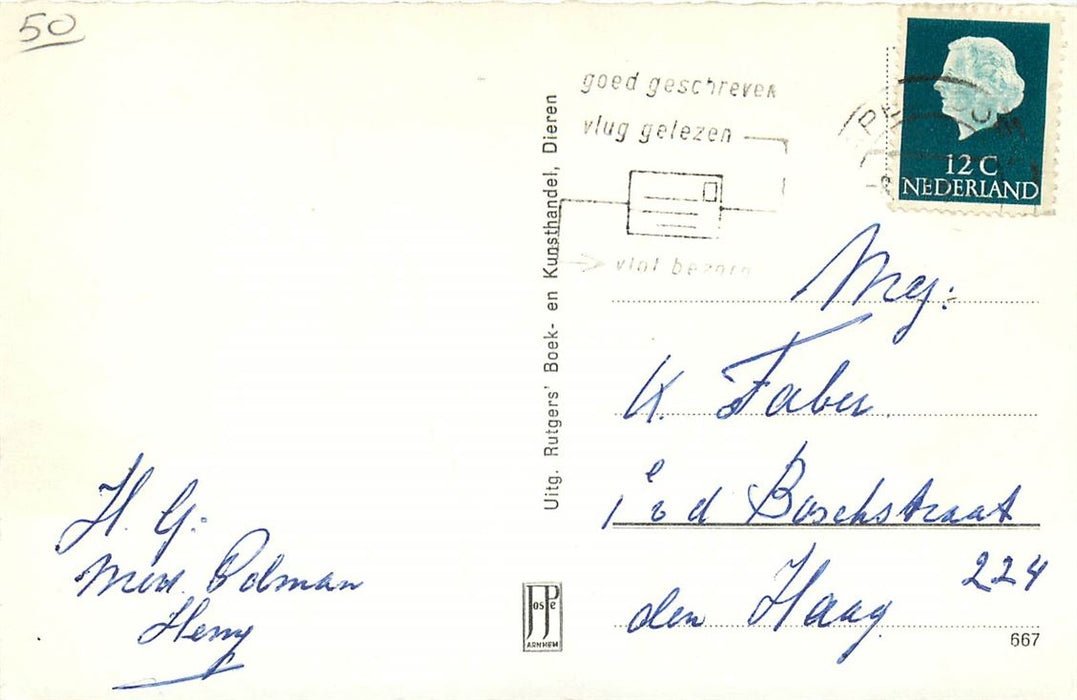 50
goed geschreven
vlug gelezen
vlot bezorg
12 C
NEDERLAND
Uitg. Rutgers' Boek- en Kunsthandel, Dieren
Mej:
K. Faber.
1e v d Boschstraat
224
den Haag
H. G:
Mevr. Polman
Henny
JosPe
ARNHEM
667